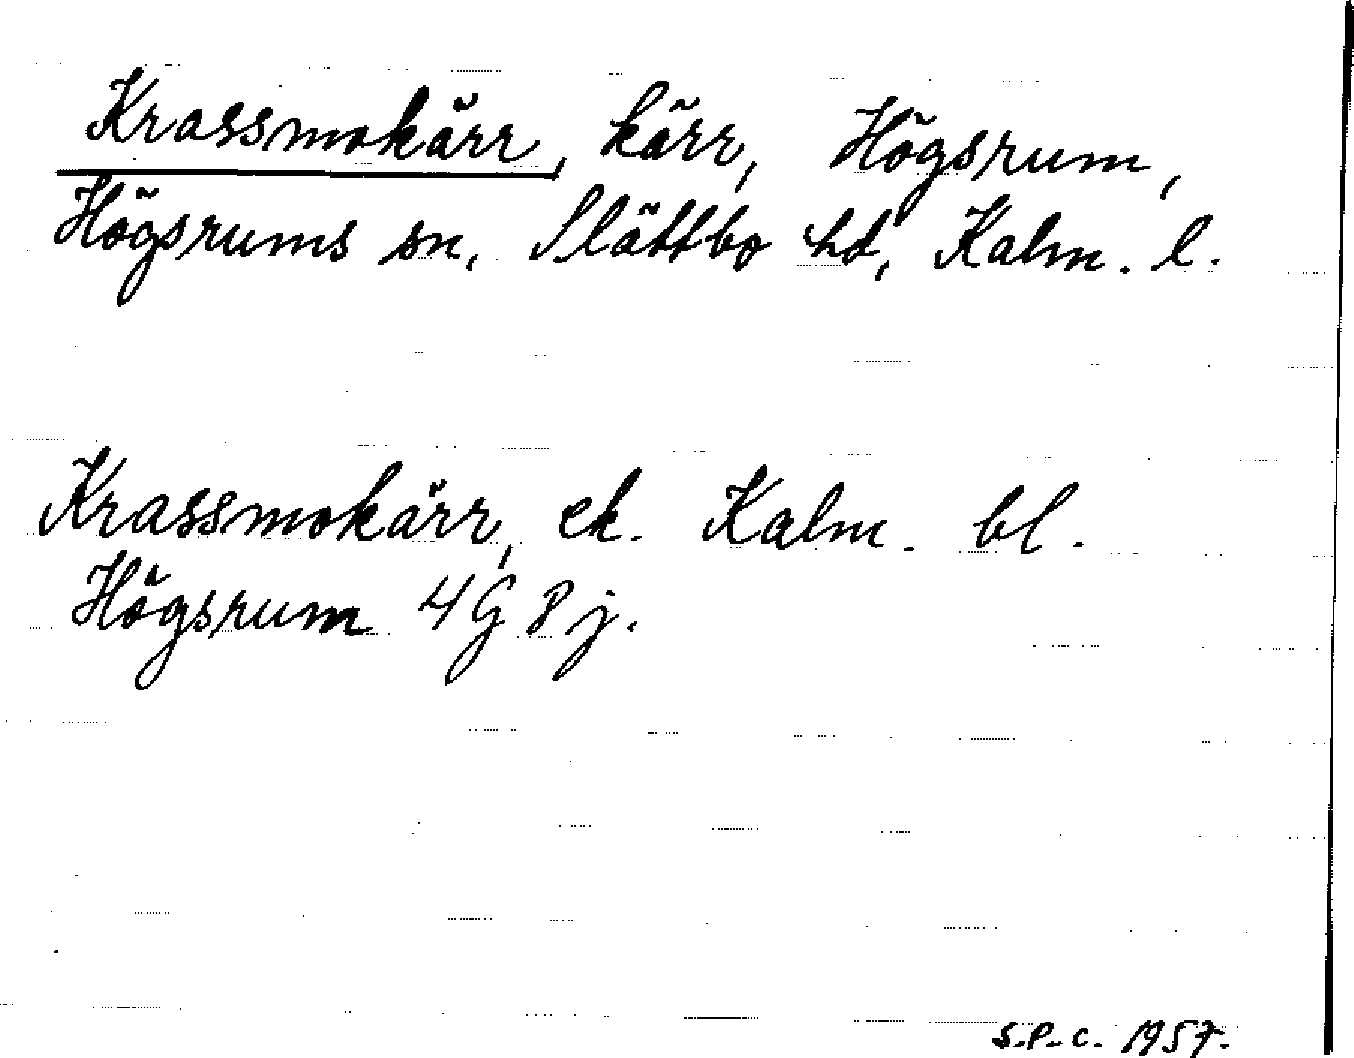 Krassmokärr, kärr, Högsrum,
Högsrums sn, Slättbo hd, Kalm. l.
Krassmokärr, ek. Kalm. bl.
Högsrum 4G 8j.
S.P.C. 1957.